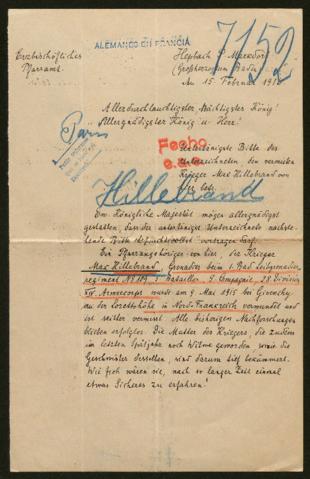 ALEMANES EN FRANCIA
7152
Erzbischöfliches
Pfarramt.
Hepbach P. Markdorf
(Großherzogtum Baden)
den 15. Februar 191
Allerdurchlauchtigster Mächtigster König!
Allergnädigster König u. Herr!
Paris
Fecho
Unterthänigste Bitte des
Unterzeichneten, den vermißten
Krieger Max Hillebrand von
Hillebrand
Ew. Königliche Majestät mögen allergnädigst
gestatten, daß der unterthänigst Unterzeichnete nachste-
hende Bitte vortragen darf.
Ein Pfarrangehöriger von hier, der Krieger
Max Hillebrand, Grenadier beim 1. Bad. Leibgrenadier-
regiment No 109, Bataillon, Compagnie, 28 Division
XIV. Armeecorps wurde am 9. Mai 1915 bei Givenchy
an der Lorettohöhe in Nord-Frankreich verwundet und
ist seither vermißt. Alle bisherigen Nachforschungen
blieben erfolglos. Die Mutter des Kriegers, die zudem
im letzten Spätjahr noch Witwe geworden sowie die
Geschwister desselben, sind darum tief bekümmert.
Wie froh wären sie, nach so langer Zeit einmal
etwas Sicheres zu erfahren!